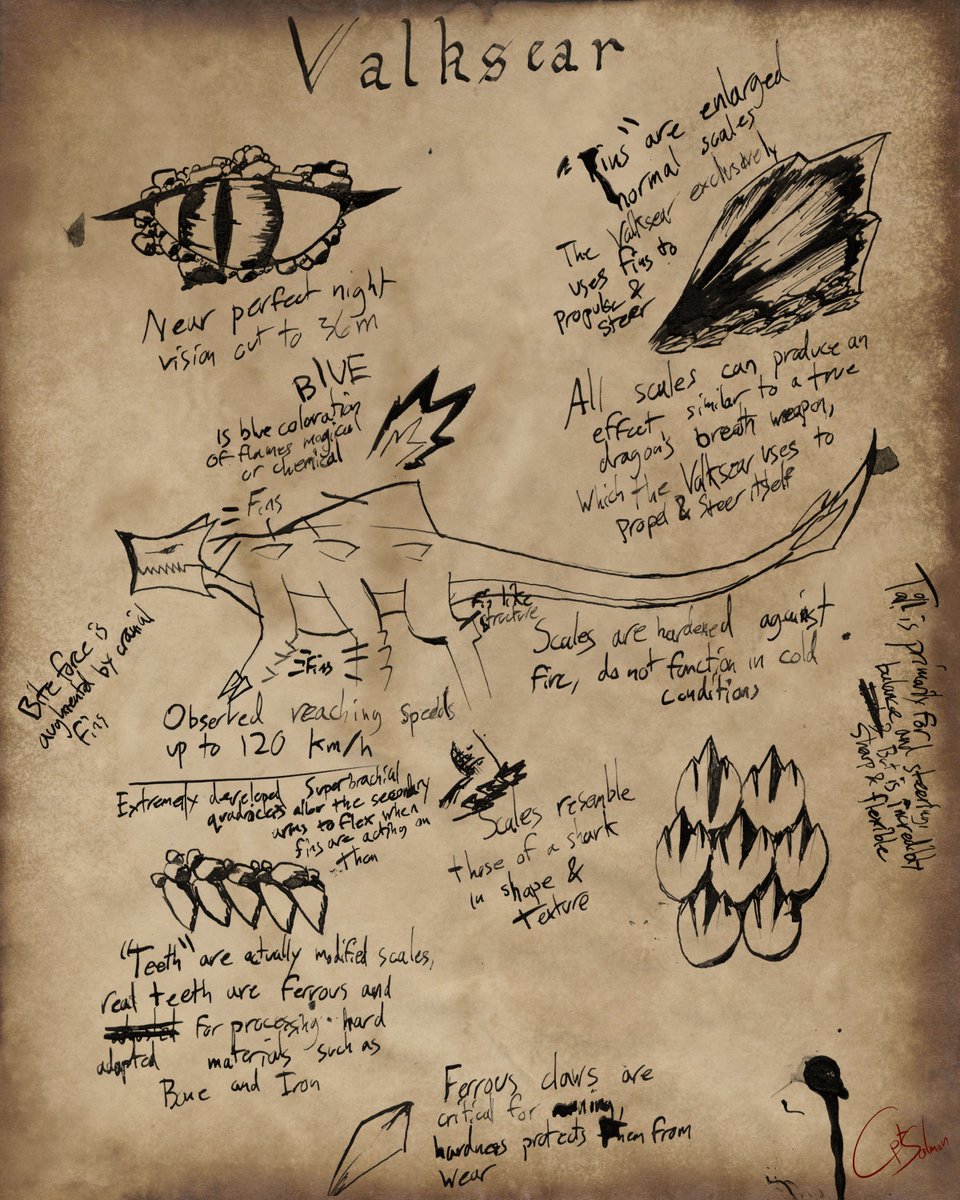 Valksear
"Fins" are enlarged
normal scales
The Valksear exclusively
uses fins to
propulse &
steer
Near perfect night
vision out to 36m
All scales can produce an
effect, similar to a true
dragons breath weapon,
which the Valksear uses to
Propel & Steer itself
BlUE
is blue coloration
of flames magical
or chemical
= Fins
Fin like
structure
=Fins
Scales are hardened against
fire, do not function in cold
conditions
Bite force is
augmented by cranial
fins
Tail is primarily for
balance and steering
But is incredibly
Sharp & flexible
Observed reaching speeds
up to 120 km/h
Extremely developed Superbrachial
quadriceps allow the secondary
arms to flex when
fins are acting on
them
Scales resemble
those of a shark
in shape &
texture
"Teeth" are actually modified scales,
real teeth are ferrous and
for processing hard
adapted materials such as
Bone and Iron
Ferrous claws are
critical for
hardness protects them from
wear